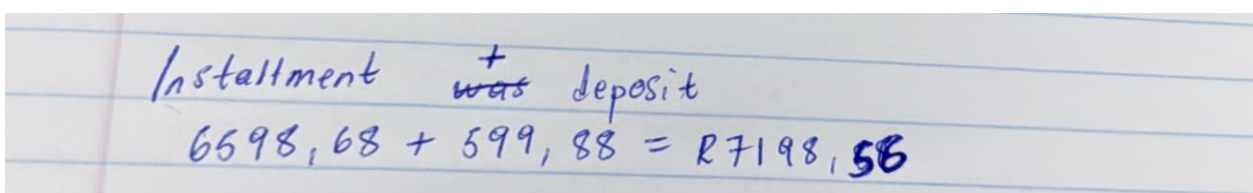 Installment + deposit
6598,68 + 599,88 = R7198,56